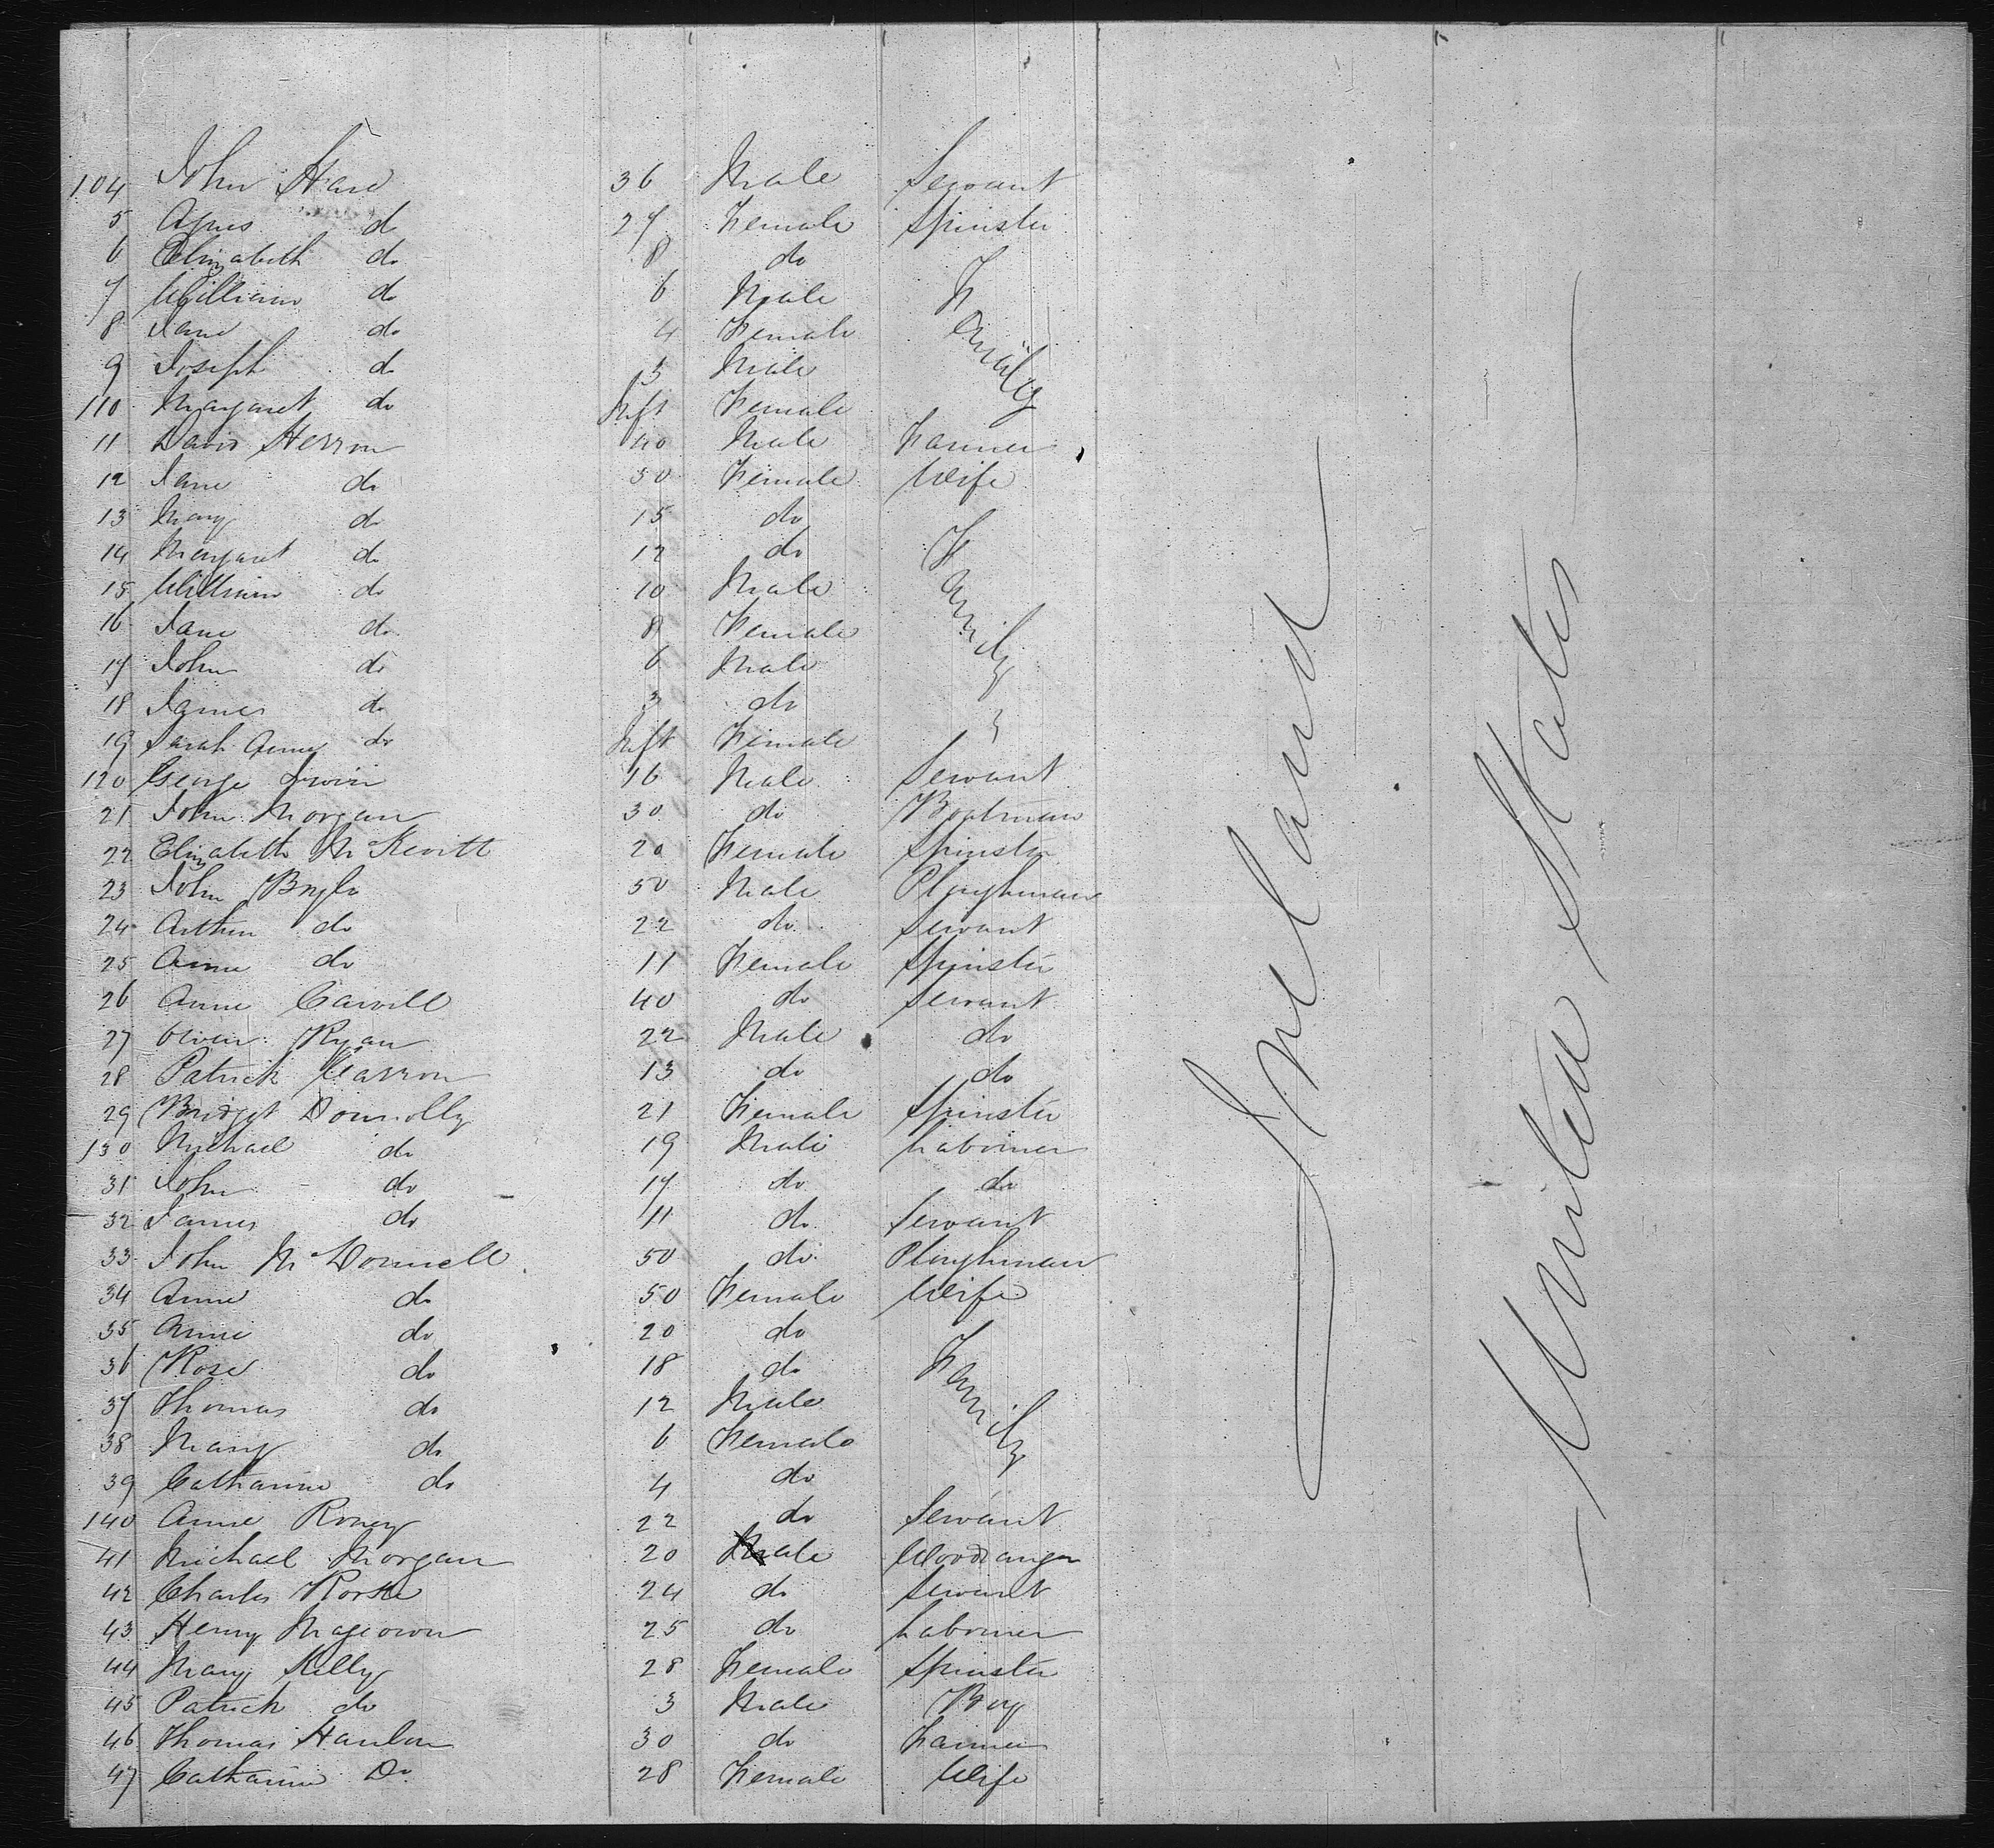 104 John Hare 36 Male Servant
5 Agnes do 27 Female Spinster
6 Elizabeth do 8 do
7 William do 6 Male
8 Jane do 4 Female
9 Joseph do 3 Male
110 Margaret do Inft Female
Family
11 David Herron 40 Male Farmer
12 Jane do 30 Female Wife
13 Mary do 15 do
14 Margaret do 12 do
15 William do 10 Male
16 Jane do 8 Female
17 John do 6 Male
18 James do 3 do
19 Sarah Anne do Inft Female
Family
120 George Irwin 16 Male Servant
21 John Morgan 30 do Boatman
22 Elizabeth McKevitt 20 Female Spinster
23 John 50 Male Ploughman
24 Arthur do 22 do Servant
25 Anne do 11 Female Spinster
26 Anne Carvill 40 do Servant
27 Owen Ryan 22 Male do
28 Patrick 13 do do
29 Bridget Donnolly 21 Female Spinster
130 Michael do 19 Male Labourer
31 John do 17 do do
32 James do 11 do Servant
33 John McDonnell 50 do Ploughman
34 Anne do 50 Female Wife
35 Anne do 20 do
36 Rose do 18 do
37 Thomas do 12 Male
38 Mary do 6 Female
39 Catharine do 4 do
Family
140 Anne Roney 22 do Servant
41 Michael Morgan 20 Male Woodranger
42 Charles Rorke 24 do Servant
43 Henry Mageown 25 do Labourer
44 Mary Kelly 28 Female Spinster
45 Patrick do 3 Male Boy
46 Thomas Hanlon 30 do Farmer
47 Catharine Do 28 Female Wife
Ireland
United States